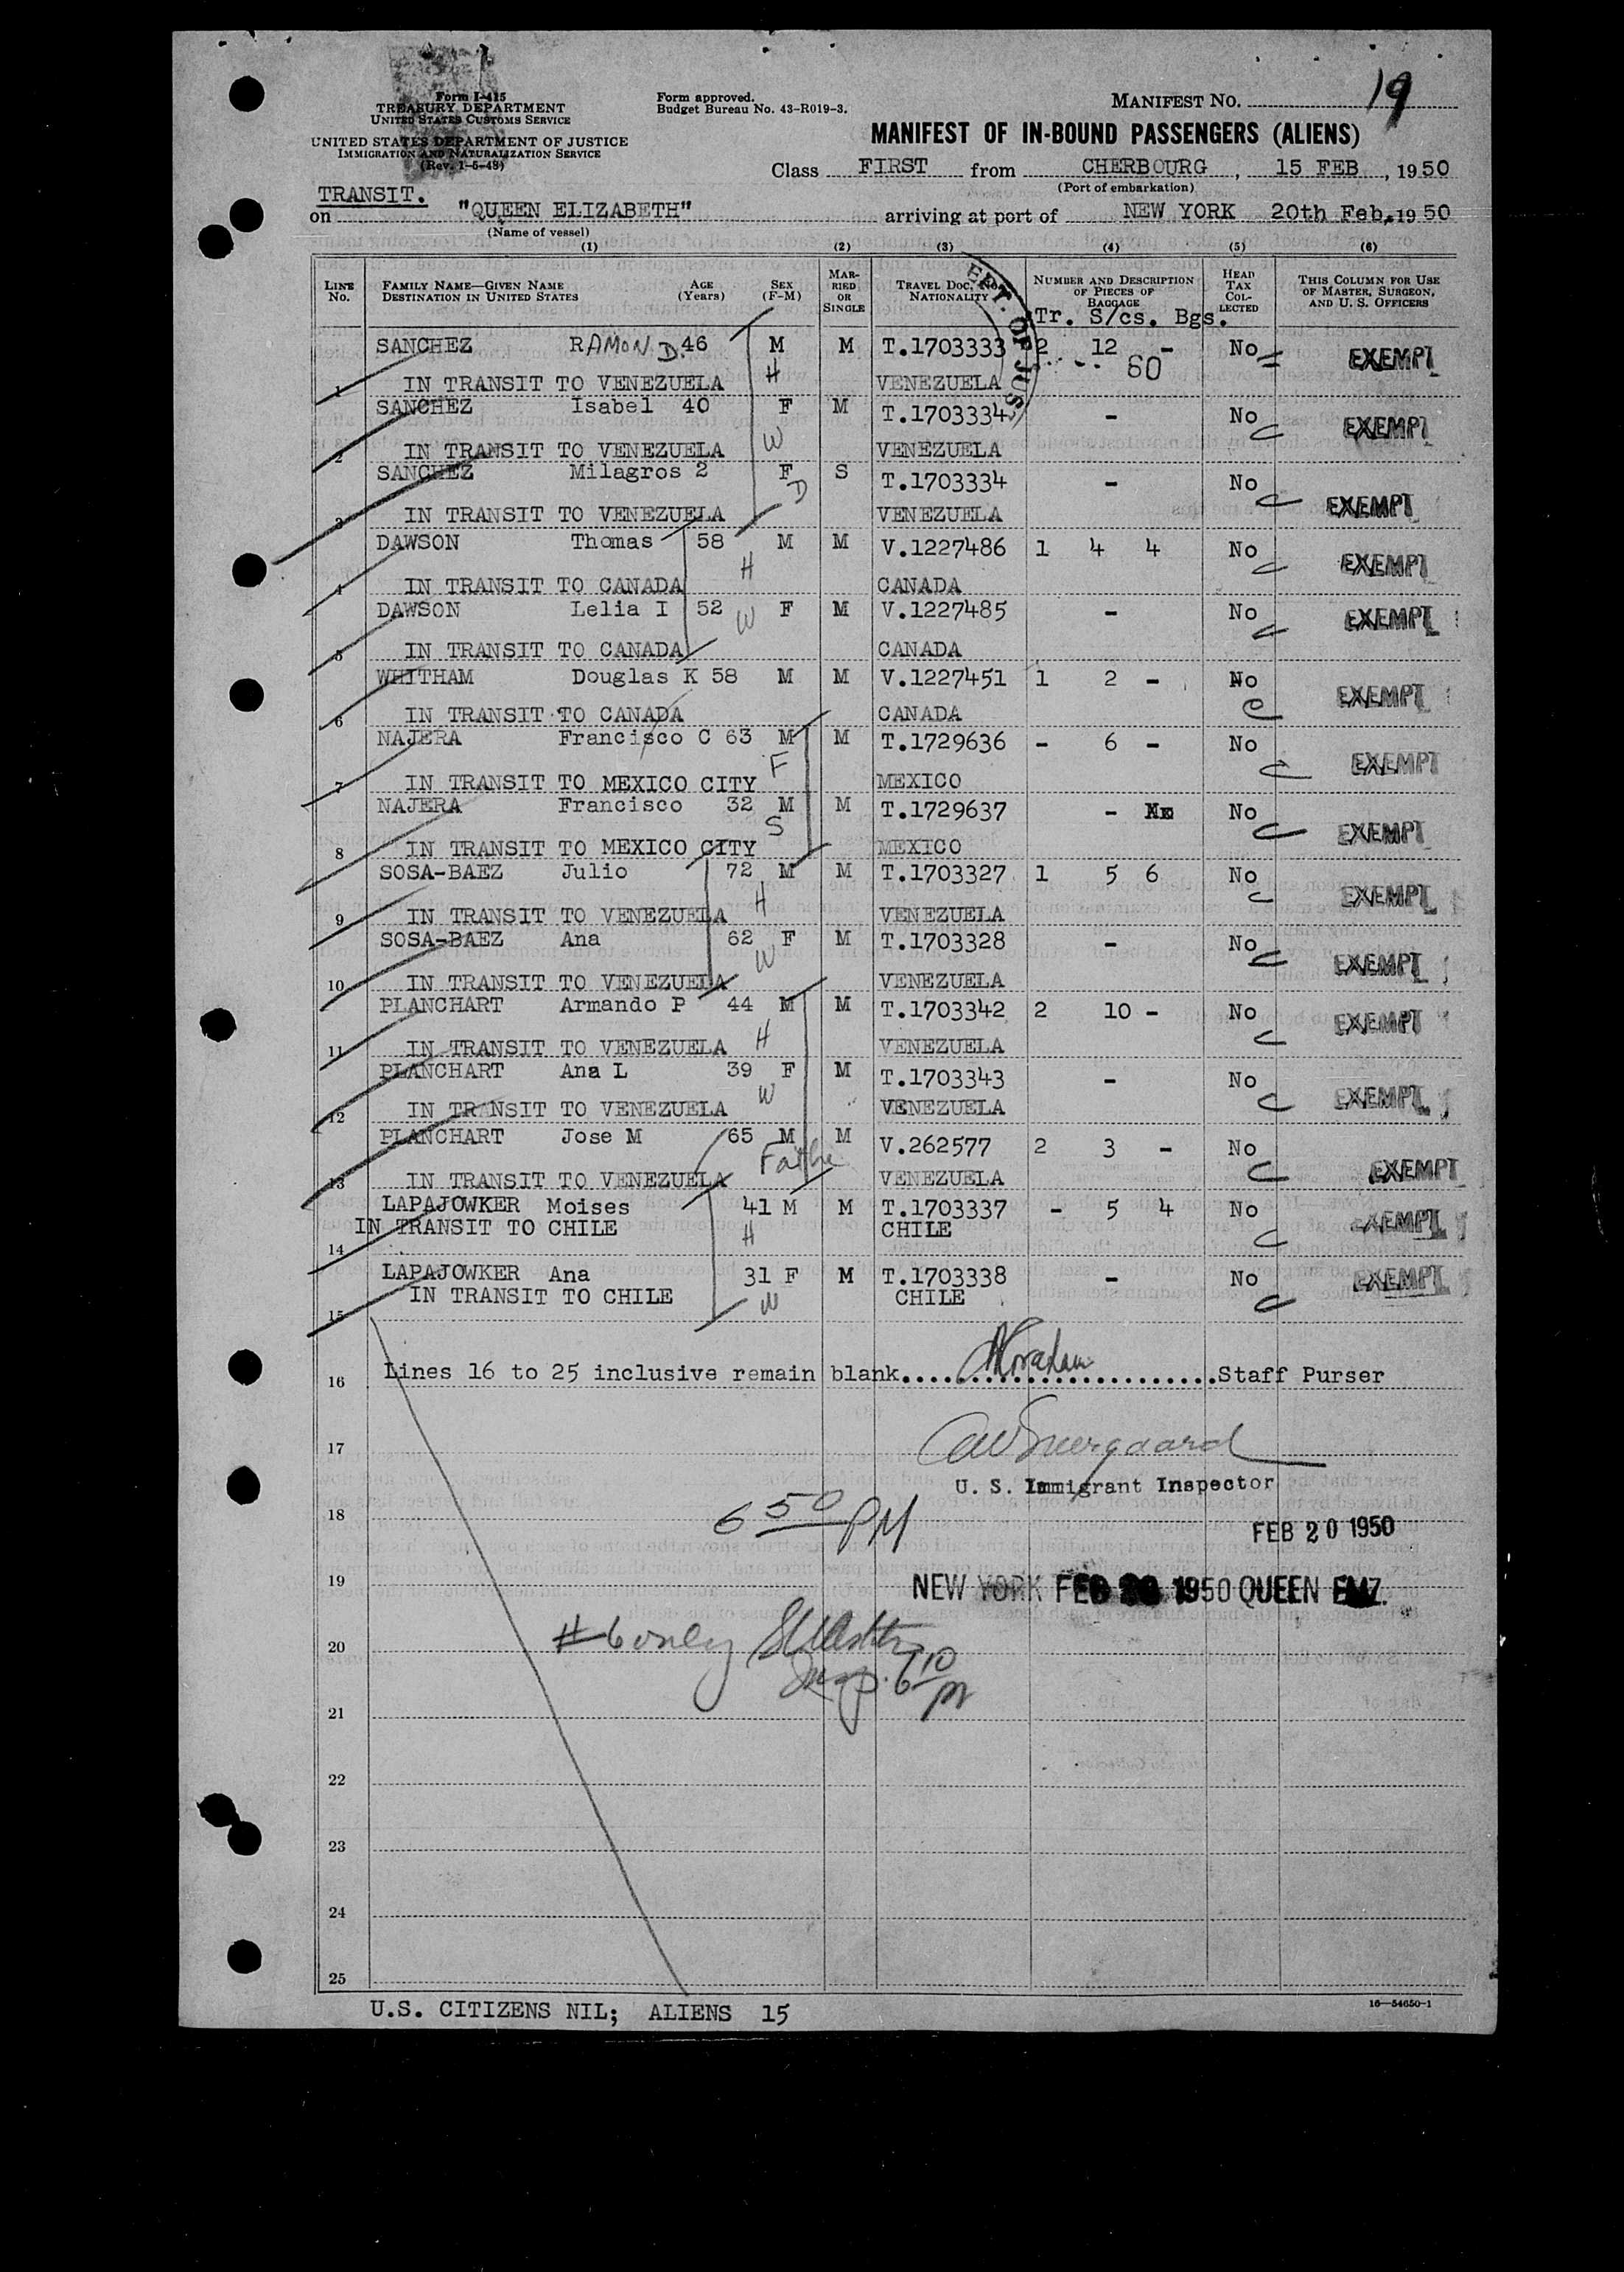 Form I-415
TREASURY DEPARTMENT
UNITED STATES CUSTOMS SERVICE
UNITED STATES DEPARTMENT OF JUSTICE
IMMIGRATION AND NATURALIZATION SERVICE
(Rev. 1-5-48)
Form approved.
Budget Bureau No. 43-R019-3.
MANIFEST NO. 19
MANIFEST OF IN-BOUND PASSENGERS (ALIENS)
Class FIRST from CHERBOURG, 15 FEB, 1950
(Port of embarkation)
TRANSIT.
on "QUEEN ELIZABETH" arriving at port of NEW YORK 20th Feb, 1950
(Name of vessel)
(1) (2) (3) (4) (5) (6)
LINE No. FAMILY NAME—GIVEN NAME DESTINATION IN UNITED STATES AGE (Years) SEX (F-M) MARRIED OR SINGLE TRAVEL DOC. NO. NATIONALITY NUMBER AND DESCRIPTION OF PIECES OF BAGGAGE HEAD TAX COLLECTED THIS COLUMN FOR USE OF MASTER, SURGEON, AND U. S. OFFICERS
Tr. S/cs. Bgs.
DEPT. OF JUS
SANCHEZ RAMON D. 46 M M T.1703333 2 12 - No EXEMPT
60
1 IN TRANSIT TO VENEZUELA H VENEZUELA
SANCHEZ Isabel 40 F M T.1703334 - No EXEMPT
2 IN TRANSIT TO VENEZUELA W VENEZUELA
SANCHEZ Milagros 2 F S T.1703334 - No EXEMPT
3 IN TRANSIT TO VENEZUELA D VENEZUELA
DAWSON Thomas 58 M M V.1227486 1 4 4 No EXEMPT
4 IN TRANSIT TO CANADA H CANADA
DAWSON Lelia I 52 F M V.1227485 - No EXEMPT
5 IN TRANSIT TO CANADA W CANADA
WHITHAM Douglas K 58 M M V.1227451 1 2 - No EXEMPT
6 IN TRANSIT TO CANADA CANADA
NAJERA Francisco C 63 M M T.1729636 - 6 - No EXEMPT
7 IN TRANSIT TO MEXICO CITY F MEXICO
NAJERA Francisco 32 M M T.1729637 - No EXEMPT
8 IN TRANSIT TO MEXICO CITY S MEXICO
SOSA-BAEZ Julio 72 M M T.1703327 1 5 6 No EXEMPT
9 IN TRANSIT TO VENEZUELA H VENEZUELA
SOSA-BAEZ Ana 62 F M T.1703328 - No EXEMPT
10 IN TRANSIT TO VENEZUELA W VENEZUELA
PLANCHART Armando P 44 M M T.1703342 2 10 - No EXEMPT
11 IN TRANSIT TO VENEZUELA H VENEZUELA
PLANCHART Ana L 39 F M T.1703343 - No EXEMPT
12 IN TRANSIT TO VENEZUELA W VENEZUELA
PLANCHART Jose M 65 M M V.262577 2 3 - No EXEMPT
13 IN TRANSIT TO VENEZUELA VENEZUELA
LAPAJOWKER Moises 41 M M T.1703337 - 5 4 No EXEMPT
IN TRANSIT TO CHILE H CHILE
14
LAPAJOWKER Ana 31 F M T.1703338 - No EXEMPT
IN TRANSIT TO CHILE W CHILE
15
16 Lines 16 to 25 inclusive remain blank Staff Purser
17
U. S. Immigrant Inspector
18 6 50 PM FEB 20 1950
19 NEW YORK FEB 20 1950 QUEEN ELIZ.
20 #6 only
Insp. 6 10 PM
21
22
23
24
25
U.S. CITIZENS NIL; ALIENS 15
16—54650-1